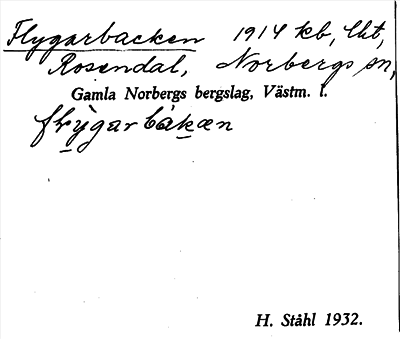 Flygarbacken 1914 kb, lht,
Rosendal, Norbergs sn,
Gamla Norbergs bergslag, Västm. l.
flỳgarbàkæn
H. Ståhl 1932.